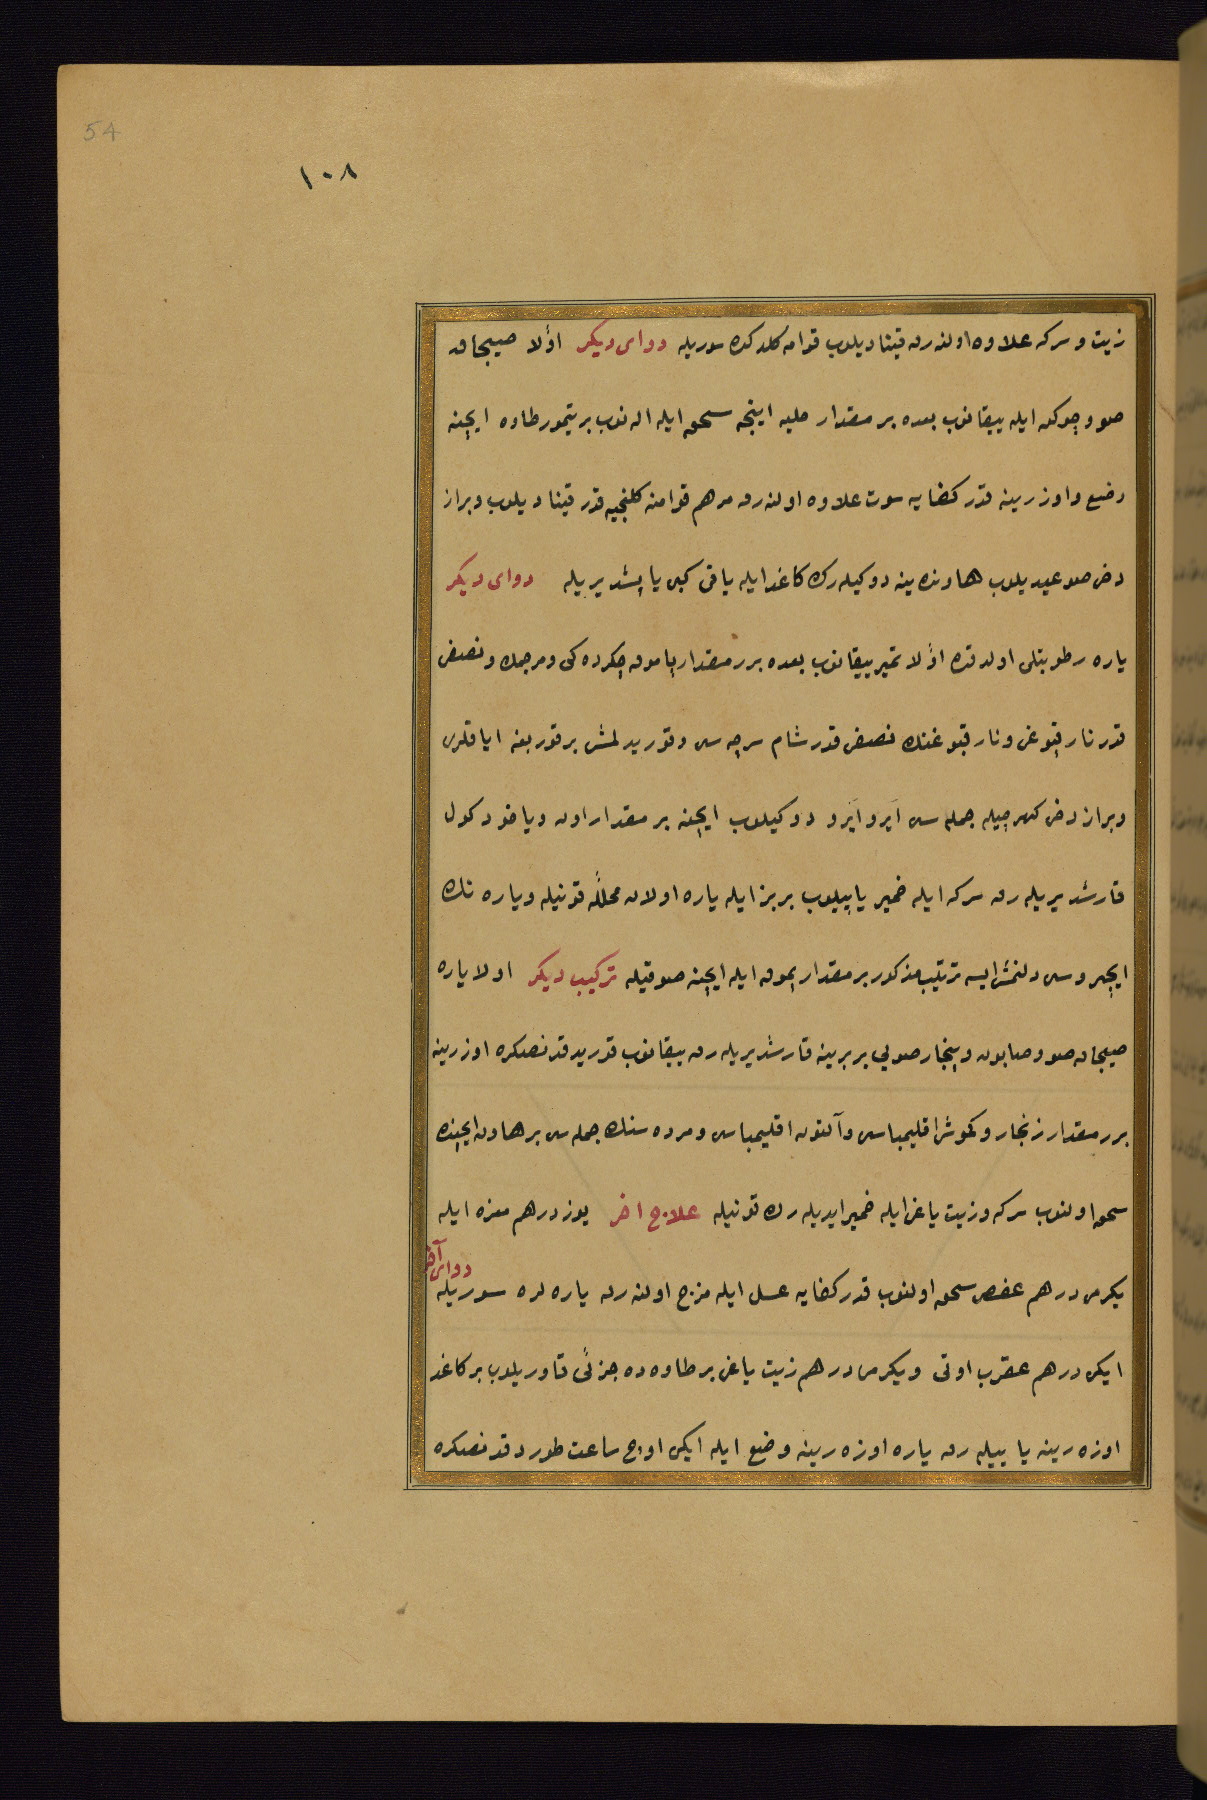 54
١٠٨
زيت و سركه علاوه اولنه‌رق قينادیلوب قوامه كلدكده سوريله دوای دیكر اوّلا صيجاق
صو و چوكن ايله ييقانوب بعده بر مقدار حلبه اينجه سحق ايله النوب بر تيمور طاوه ايچنه
وضع و اوزرينه قدر كفايه سوت علاوه اولنه‌رق مرهم قوامنه كلنجيه قدر قيناديلوب و براز
دخی صلوعيديلوب هاونده ينه دوكيله‌رك كاغد ايله ياقی كبی ياپشديريله دوای ديكر
ياره رطوبتلی اولدقده اوّلا تميز ييقانوب بعده برر مقدار پاموق چكردكی و مرجمك و نصف
قدر نار قبوغی و نار قبوغنك نصفی قدر شام سرچه سی و قوريدلمش بر قوربغه اياقلری
و براز دخی كهرجيله جمله سی آيرو آيرو دوكيلوب ايچنه بر مقدار اون و ياخود كول
قارشديريله‌رق سركه ايله خمير ياپيلوب بر بز ايله ياره اولان محلّه قونيله و ياره نك
ايچروسی دلنمش ايسه ترتيب مذكور بر مقدار پموق ايله ايچنه صوقيله تركيب ديكر اولا ياره
صيجاق صو و صابون و پنجار صويی بربرينه قارشديريله‌رق ييقانوب قوريدقدنصكره اوزرينه
برر مقدار زنجار و كموش اقليمياسی و آلتون اقليمياسی و مرده سنك جمله سی بر هاون ايچنده
سحق اولنوب سركه و زيت ياغی ايله خمير ايديله‌رك قونيله علاج اخر يوز درهم مغره ايله
يكرمی درهم عفص سحق اولنوب قدر كفايه عسل ايله مزج اولنه‌رق ياره لره سوريله دوای آخر
ايكی درهم عقرب اوتی و يكرمی درهم زيت ياغی بر طاوه ده جزئی قاوريلوب بر كاغد
اوزه رينه ياپيله‌رق ياره اوزه رينه وضع ايله ايكی اوچ ساعت طوردقدنصكره